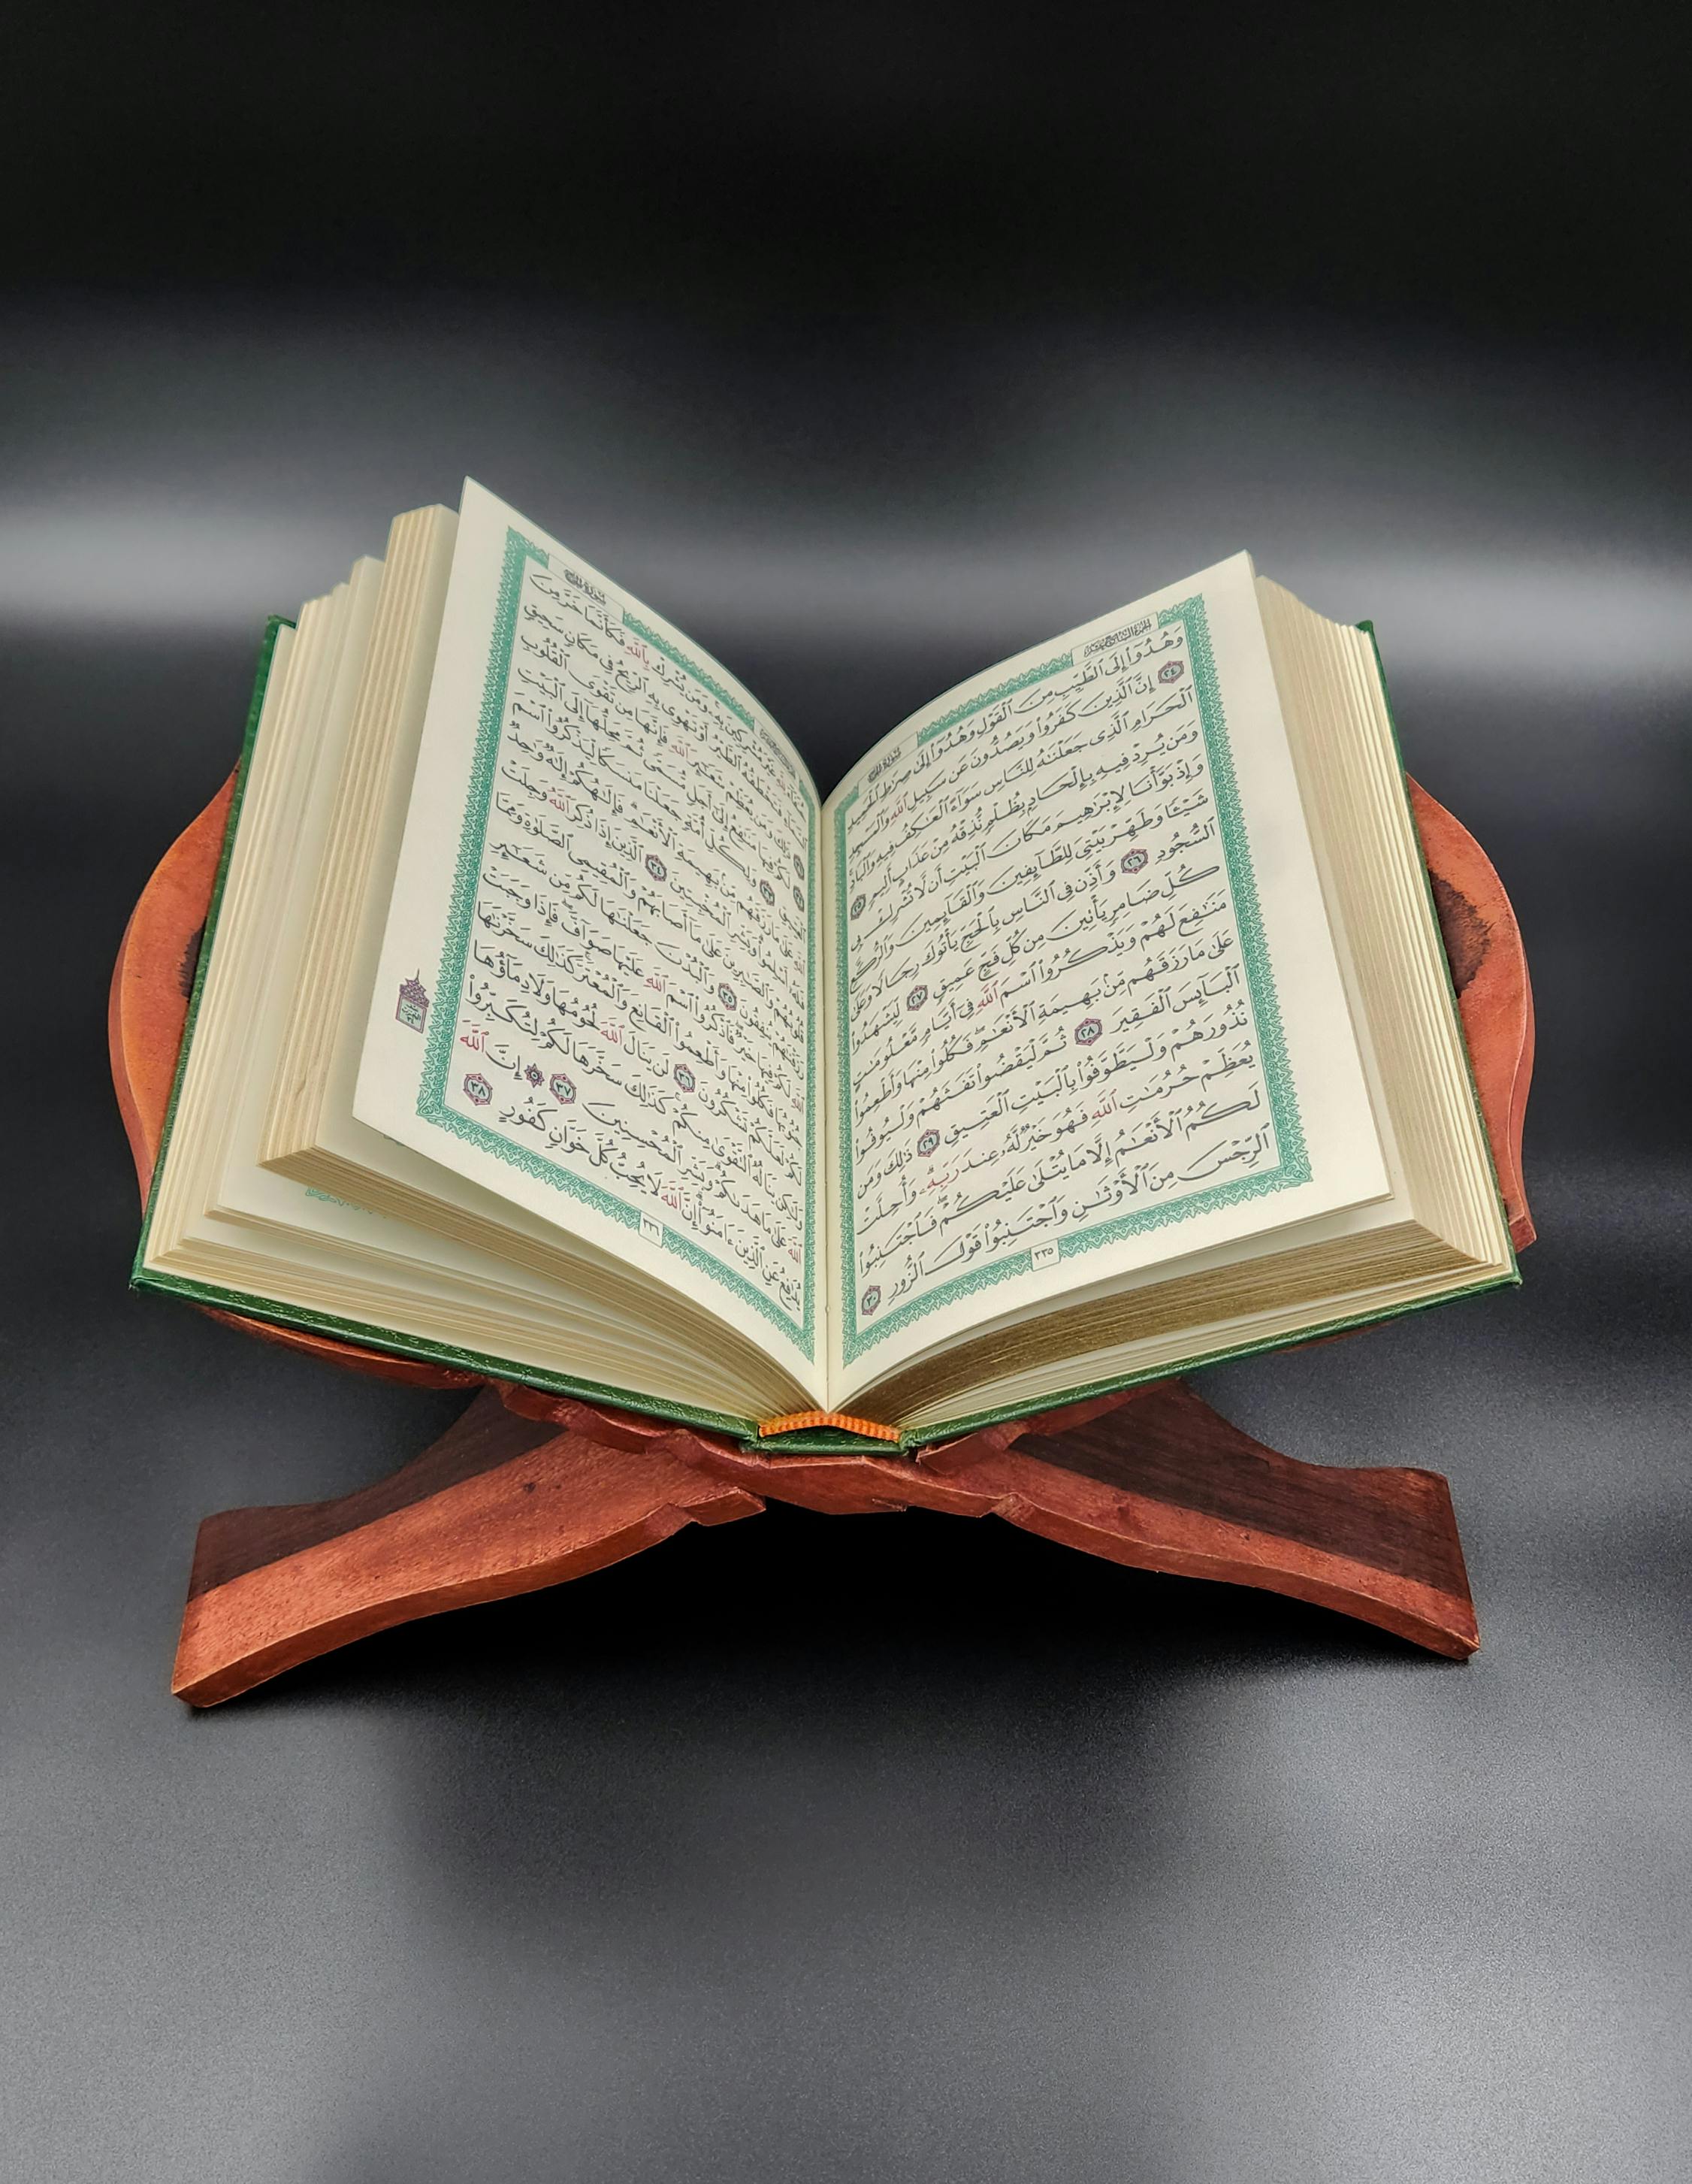 الجزء السابع عشر
سورة الحج
وَهُدُوٓاْ إِلَى ٱلطَّيِّبِ مِنَ ٱلْقَوْلِ وَهُدُوٓاْ إِلَىٰ صِرَٰطِ ٱلْحَمِيدِ
٢٤ إِنَّ ٱلَّذِينَ كَفَرُواْ وَيَصُدُّونَ عَن سَبِيلِ ٱللَّهِ وَٱلْمَسْجِدِ
ٱلْحَرَامِ ٱلَّذِى جَعَلْنَٰهُ لِلنَّاسِ سَوَآءً ٱلْعَٰكِفُ فِيهِ وَٱلْبَادِ
وَمَن يُرِدْ فِيهِ بِإِلْحَادٍۭ بِظُلْمٍ نُّذِقْهُ مِنْ عَذَابٍ أَلِيمٍ ٢٥
وَإِذْ بَوَّأْنَا لِإِبْرَٰهِيمَ مَكَانَ ٱلْبَيْتِ أَن لَّا تُشْرِكْ بِى
شَيْـًٔا وَطَهِّرْ بَيْتِىَ لِلطَّآئِفِينَ وَٱلْقَآئِمِينَ وَٱلرُّكَّعِ
ٱلسُّجُودِ ٢٦ وَأَذِّن فِى ٱلنَّاسِ بِٱلْحَجِّ يَأْتُوكَ رِجَالًا وَعَلَىٰ
كُلِّ ضَامِرٍ يَأْتِينَ مِن كُلِّ فَجٍّ عَمِيقٍ ٢٧ لِّيَشْهَدُواْ
مَنَٰفِعَ لَهُمْ وَيَذْكُرُواْ ٱسْمَ ٱللَّهِ فِىٓ أَيَّامٍ مَّعْلُومَٰتٍ
عَلَىٰ مَا رَزَقَهُم مِّنۢ بَهِيمَةِ ٱلْأَنْعَٰمِ ۖ فَكُلُواْ مِنْهَا وَأَطْعِمُواْ
ٱلْبَآئِسَ ٱلْفَقِيرَ ٢٨ ثُمَّ لْيَقْضُواْ تَفَثَهُمْ وَلْيُوفُواْ
نُذُورَهُمْ وَلْيَطَّوَّفُواْ بِٱلْبَيْتِ ٱلْعَتِيقِ ٢٩ ذَٰلِكَ وَمَن
يُعَظِّمْ حُرُمَٰتِ ٱللَّهِ فَهُوَ خَيْرٌ لَّهُۥ عِندَ رَبِّهِۦ ۗ وَأُحِلَّتْ
لَكُمُ ٱلْأَنْعَٰمُ إِلَّا مَا يُتْلَىٰ عَلَيْكُمْ ۖ فَٱجْتَنِبُواْ
ٱلرِّجْسَ مِنَ ٱلْأَوْثَٰنِ وَٱجْتَنِبُواْ قَوْلَ ٱلزُّورِ ٣٠
٣٣٥
سورة الحج
مُشْرِكِينَ بِهِۦ ۚ وَمَن يُشْرِكْ بِٱللَّهِ فَكَأَنَّمَا خَرَّ مِنَ
فَتَخْطَفُهُ ٱلطَّيْرُ أَوْ تَهْوِى بِهِ ٱلرِّيحُ فِى مَكَانٍ سَحِيقٍ
وَمَن يُعَظِّمْ شَعَٰٓئِرَ ٱللَّهِ فَإِنَّهَا مِن تَقْوَى ٱلْقُلُوبِ
فِيهَا مَنَٰفِعُ إِلَىٰٓ أَجَلٍ مُّسَمًّى ثُمَّ مَحِلُّهَآ إِلَى ٱلْبَيْتِ
٣٣ وَلِكُلِّ أُمَّةٍ جَعَلْنَا مَنسَكًا لِّيَذْكُرُواْ ٱسْمَ
رَزَقَهُم مِّنۢ بَهِيمَةِ ٱلْأَنْعَٰمِ ۗ فَإِلَٰهُكُمْ إِلَٰهٌ وَٰحِدٌ
أَسْلِمُواْ ۗ وَبَشِّرِ ٱلْمُخْبِتِينَ ٣٤ ٱلَّذِينَ إِذَا ذُكِرَ ٱللَّهُ وَجِلَتْ
قُلُوبُهُمْ وَٱلصَّٰبِرِينَ عَلَىٰ مَآ أَصَابَهُمْ وَٱلْمُقِيمِى ٱلصَّلَوٰةِ وَمِمَّا
يُنفِقُونَ ٣٥ وَٱلْبُدْنَ جَعَلْنَٰهَا لَكُم مِّن شَعَٰٓئِرِ
خَيْرٌ ۖ فَٱذْكُرُواْ ٱسْمَ ٱللَّهِ عَلَيْهَا صَوَآفَّ ۖ فَإِذَا وَجَبَتْ
فَكُلُواْ مِنْهَا وَأَطْعِمُواْ ٱلْقَانِعَ وَٱلْمُعْتَرَّ ۚ كَذَٰلِكَ سَخَّرْنَٰهَا
لَعَلَّكُمْ تَشْكُرُونَ ٣٦ لَن يَنَالَ ٱللَّهَ لُحُومُهَا وَلَا دِمَآؤُهَا
وَلَٰكِن يَنَالُهُ ٱلتَّقْوَىٰ مِنكُمْ ۚ كَذَٰلِكَ سَخَّرَهَا لَكُمْ لِتُكَبِّرُواْ
ٱللَّهَ عَلَىٰ مَا هَدَىٰكُمْ ۗ وَبَشِّرِ ٱلْمُحْسِنِينَ ٣٧ ۞ إِنَّ ٱللَّهَ
يُدَٰفِعُ عَنِ ٱلَّذِينَ ءَامَنُوٓاْ ۗ إِنَّ ٱللَّهَ لَا يُحِبُّ كُلَّ خَوَّانٍ كَفُورٍ ٣٨
٣٣٦